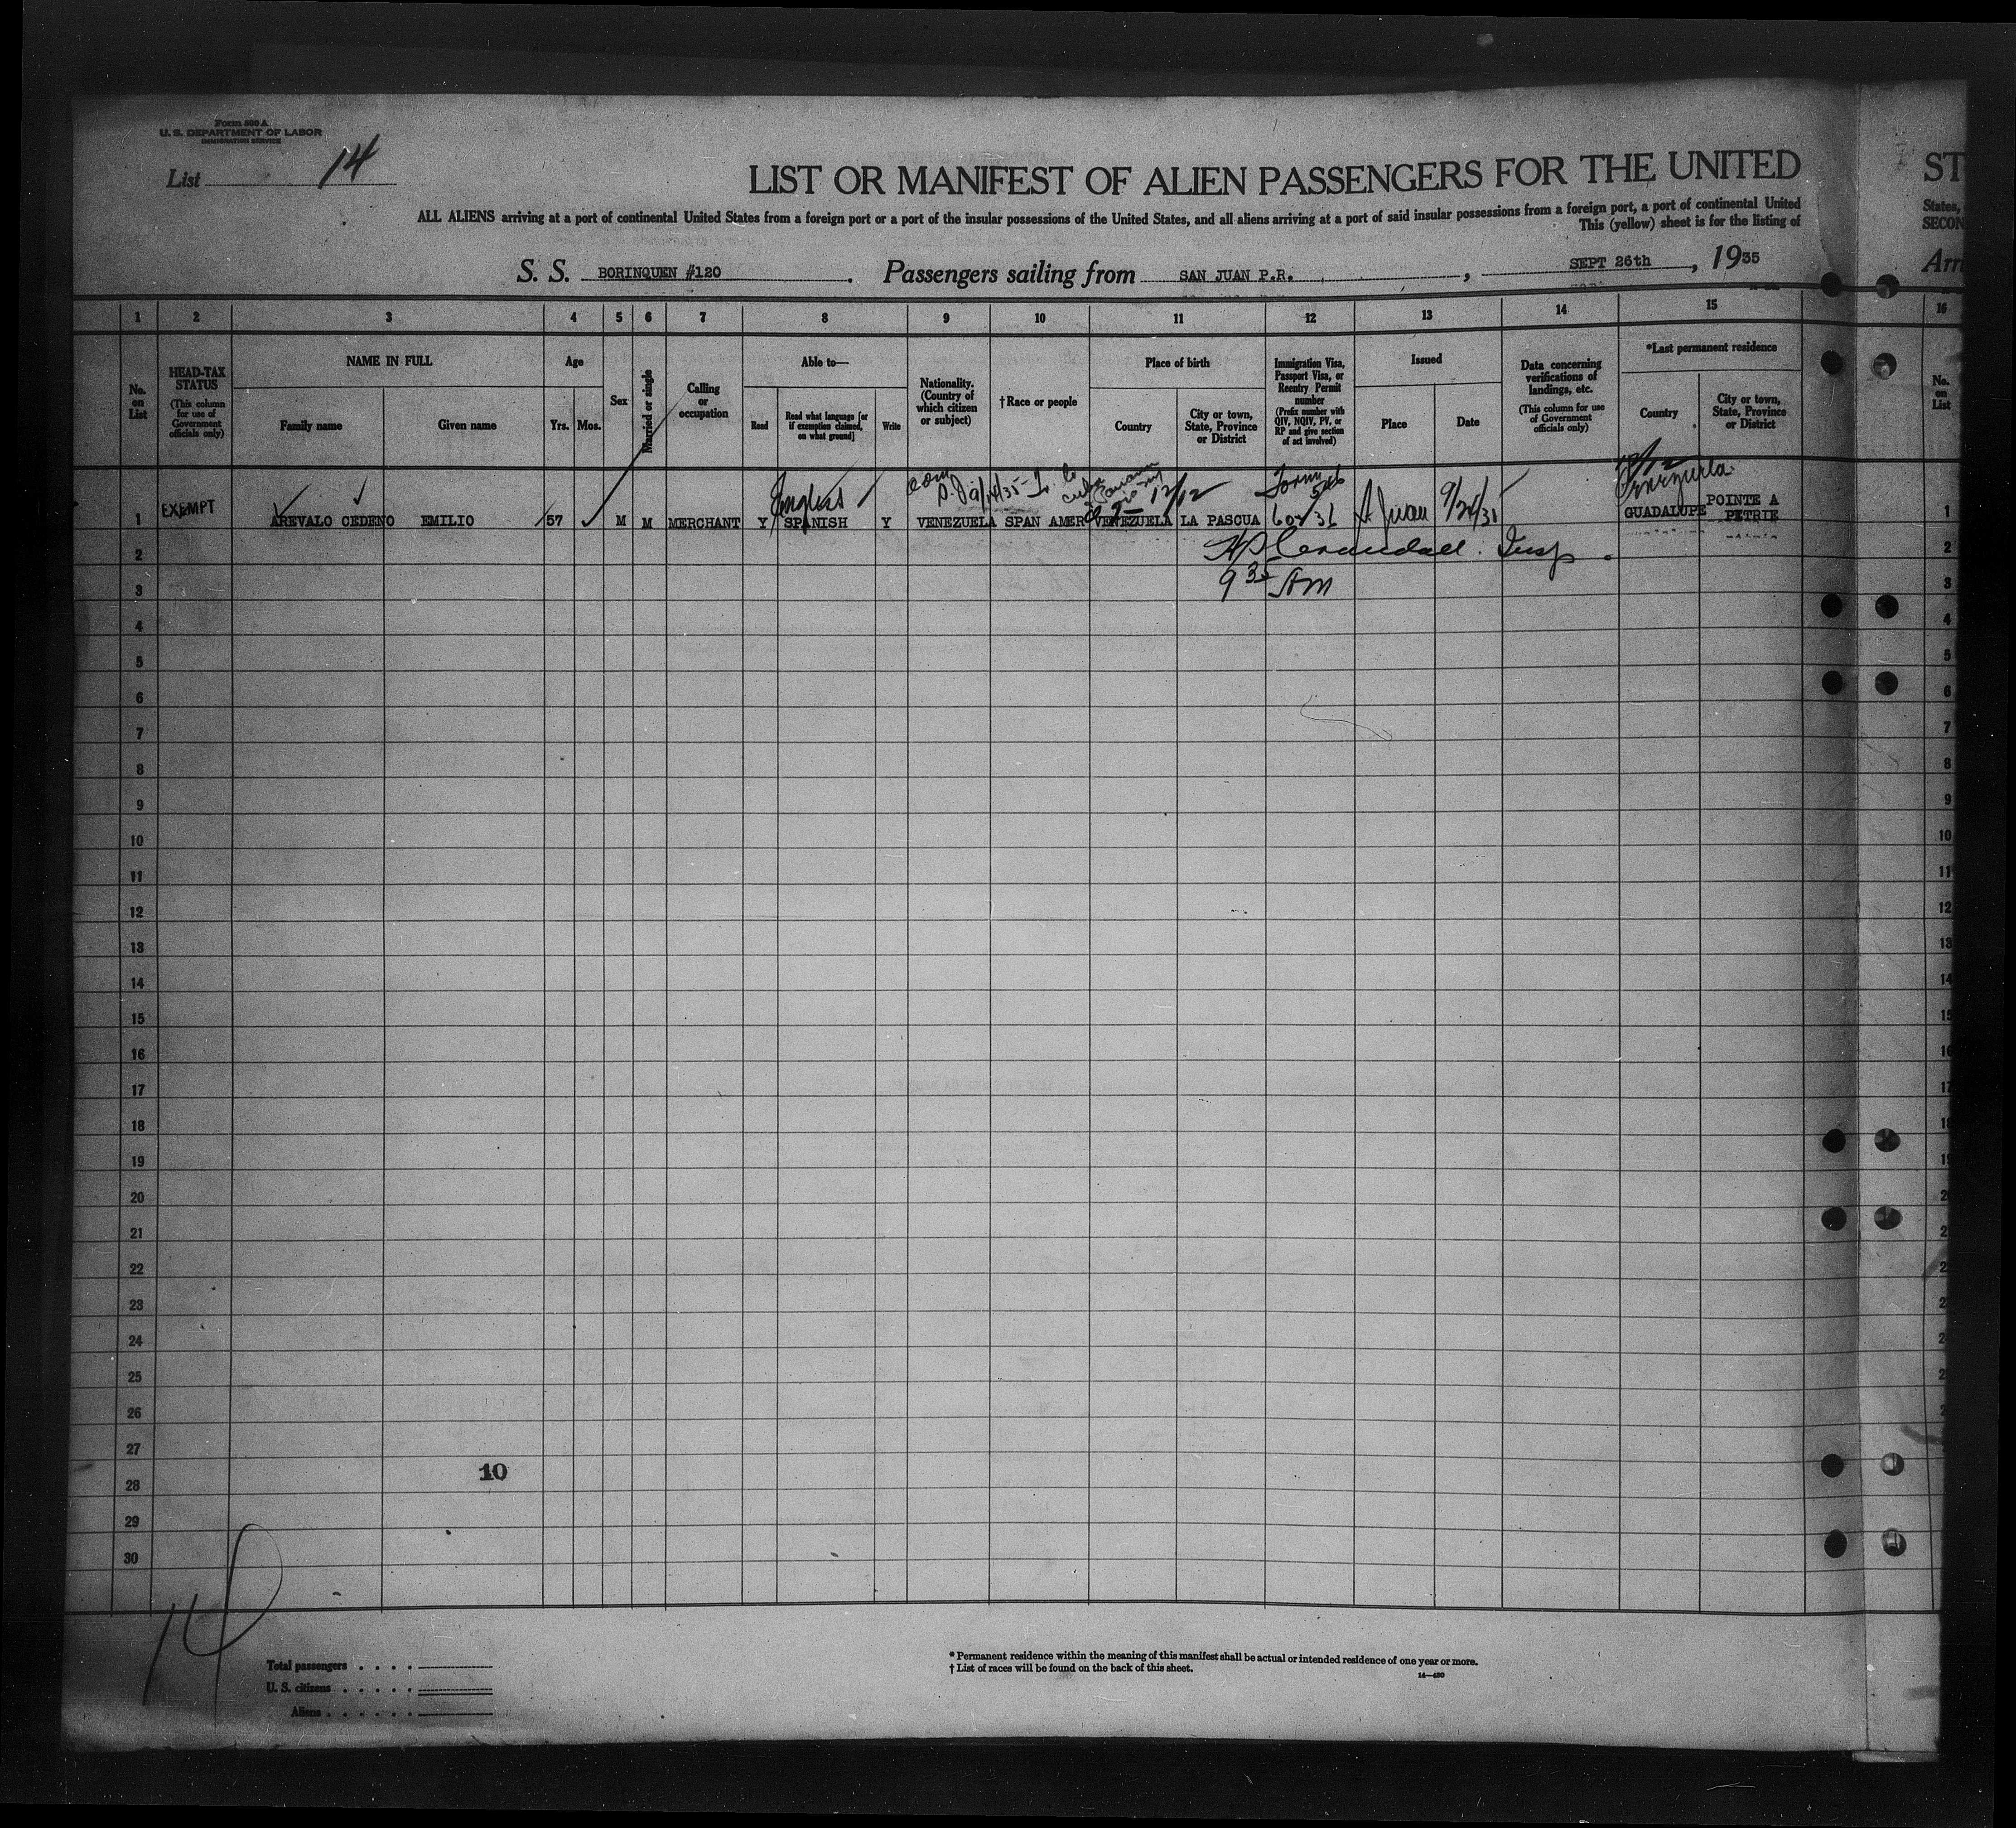 Form 500 A
U. S. DEPARTMENT OF LABOR
IMMIGRATION SERVICE
List 14
LIST OR MANIFEST OF ALIEN PASSENGERS FOR THE UNITED
ST
ALL ALIENS arriving at a port of continental United States from a foreign port or a port of the insular possessions of the United States, and all aliens arriving at a port of said insular possessions from a foreign port, a port of continental United
States,
This (yellow) sheet is for the listing of
SECON
S. S. BORINQUEN #120. Passengers sailing from SAN JUAN P.R., SEPT 26th, 1935
Arri
1 2 3 4 5 6 7 8 9 10 11 12 13 14 15 16
No. on List
HEAD-TAX STATUS
(This column for use of Government officials only)
NAME IN FULL
Family name
Given name
Age
Yrs.
Mos.
Sex
Married or single
Calling or occupation
Able to—
Read
Read what language [or if exemption claimed, on what ground]
Write
Nationality. (Country of which citizen or subject)
†Race or people
Place of birth
Country
City or town, State, Province or District
Immigration Visa, Passport Visa, or Reentry Permit number
(Prefix number with QIV, NQIV, PV, or RP and give section of act involved)
Issued
Place
Date
Data concerning verifications of landings, etc.
(This column for use of Government officials only)
*Last permanent residence
Country
City or town, State, Province or District
No. on List
English
12/12
Form 546
Venezuela
1 EXEMPT AREVALO CEDENO EMILIO 57 M M MERCHANT Y SPANISH Y VENEZUELA SPAN AMER VENEZUELA LA PASCUA 602/36 S. Juan GUADALUPE POINTE A PETRIE 1
2 Insp. 2
3 9 35 AM 3
4 4
5 5
6 6
7 7
8 8
9 9
10 10
11 11
12 12
13 13
14 14
15 15
16 16
17 17
18 18
19 19
20 2
21 2
22 2
23 2
24 2
25 2
26 2
27
10
28
29
30
14
Total passengers . . . .
U. S. citizens . . . . .
Aliens . . . . . .
* Permanent residence within the meaning of this manifest shall be actual or intended residence of one year or more.
† List of races will be found on the back of this sheet.
14—420